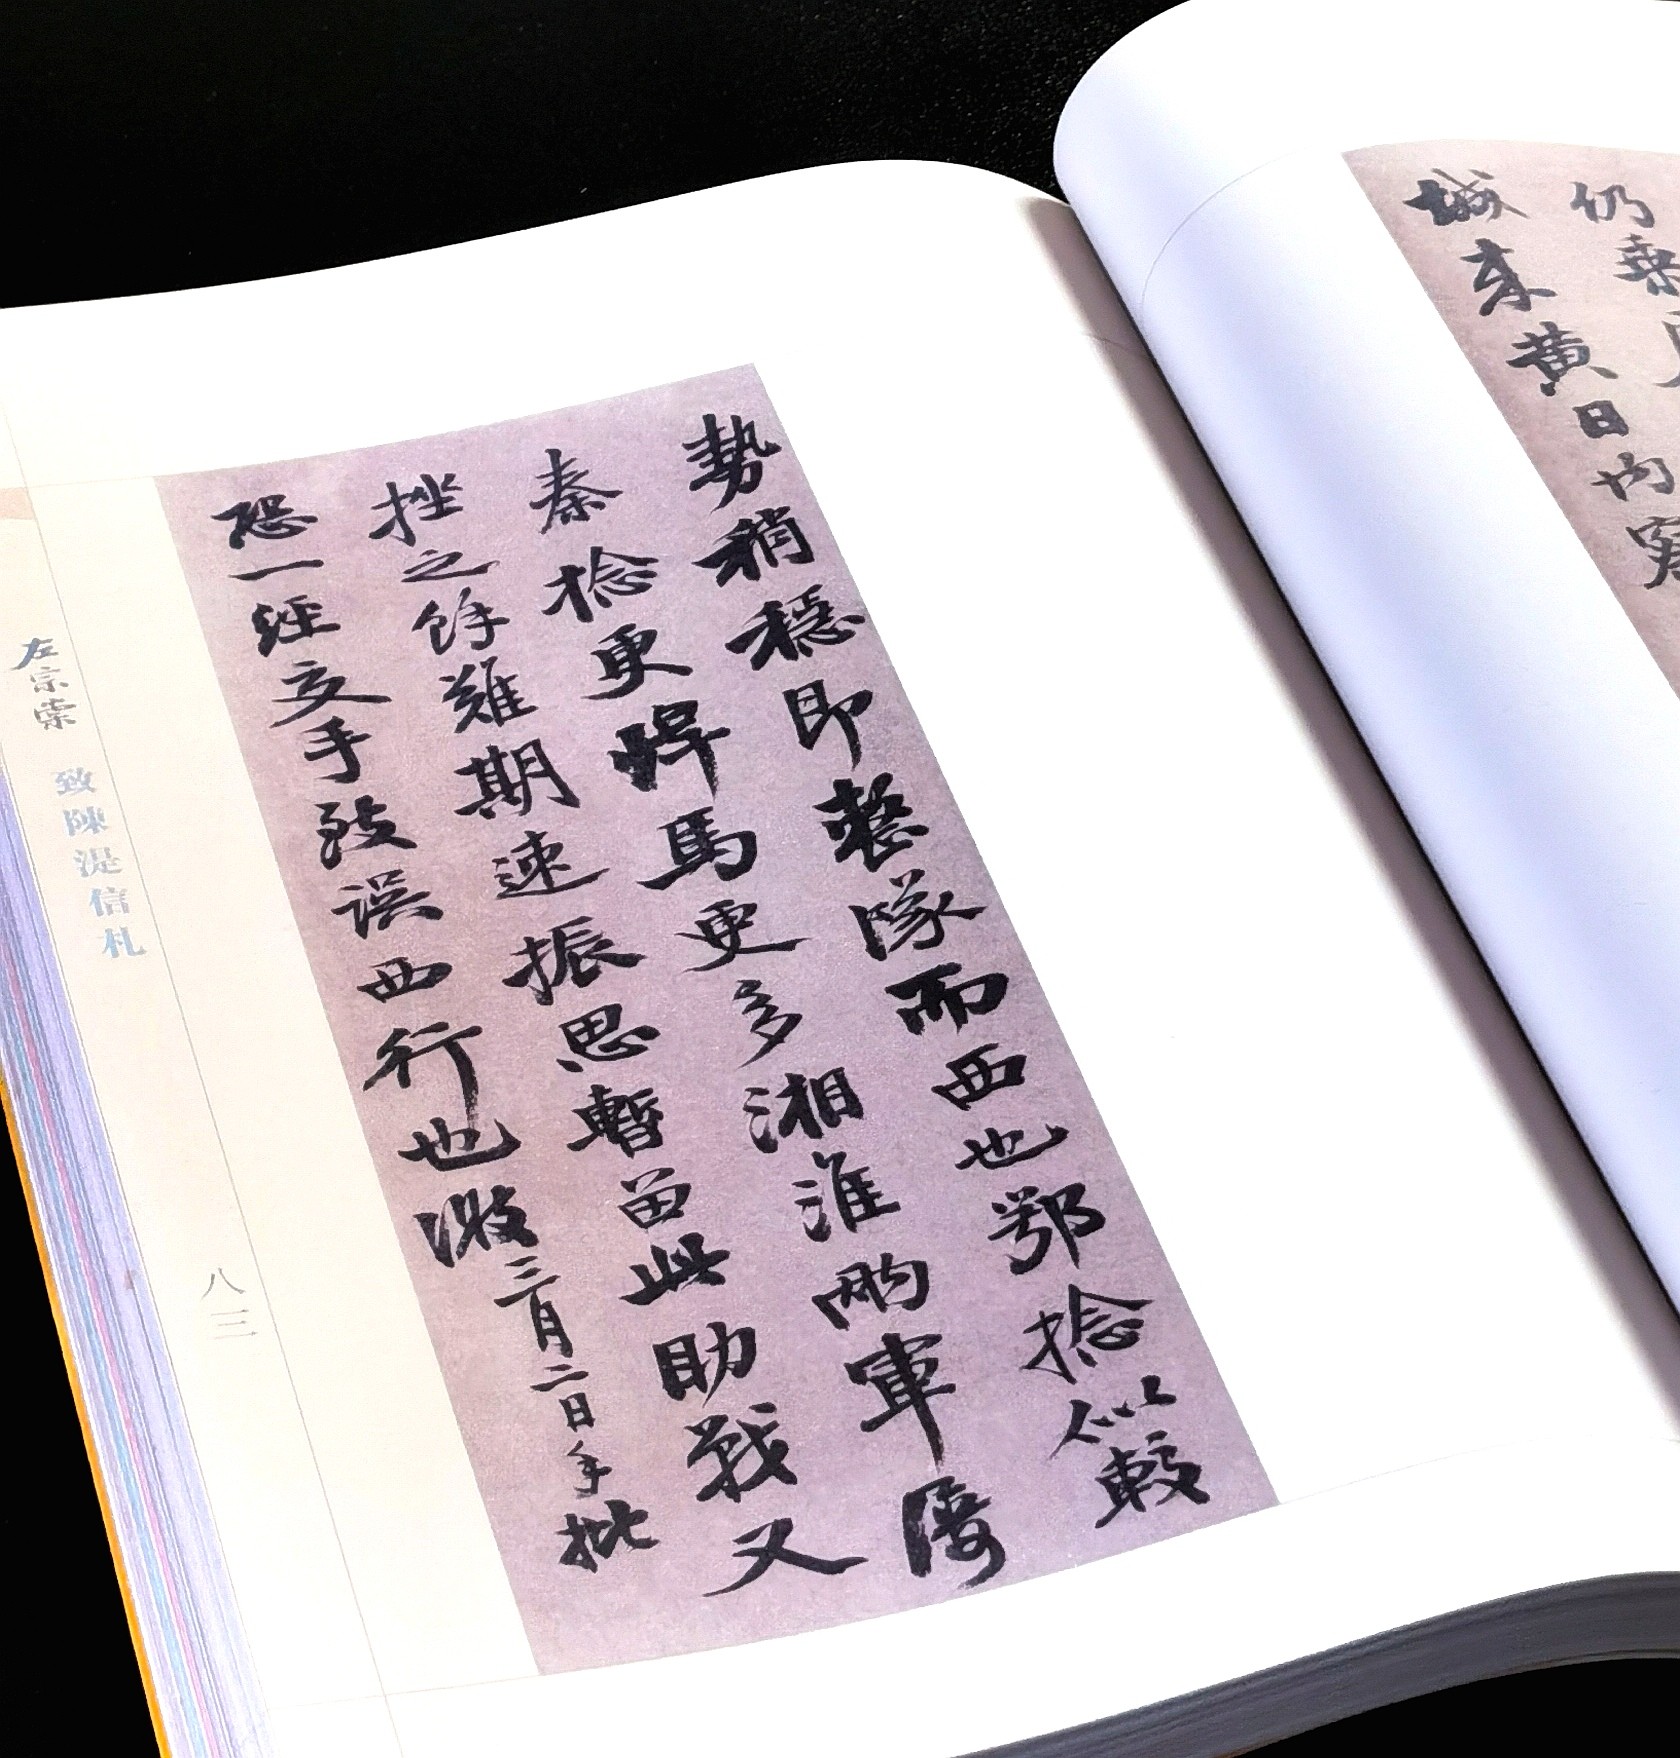 仍乘
城來黃日內
勢稍穩即整隊而西也鄂捻似較
秦捻更悍馬更多湘淮兩軍屢
挫之餘難期速振思暫留此助戰又
恐一經交手致誤西行也 三月二日手批
左宗棠 致陳湜信札
八三